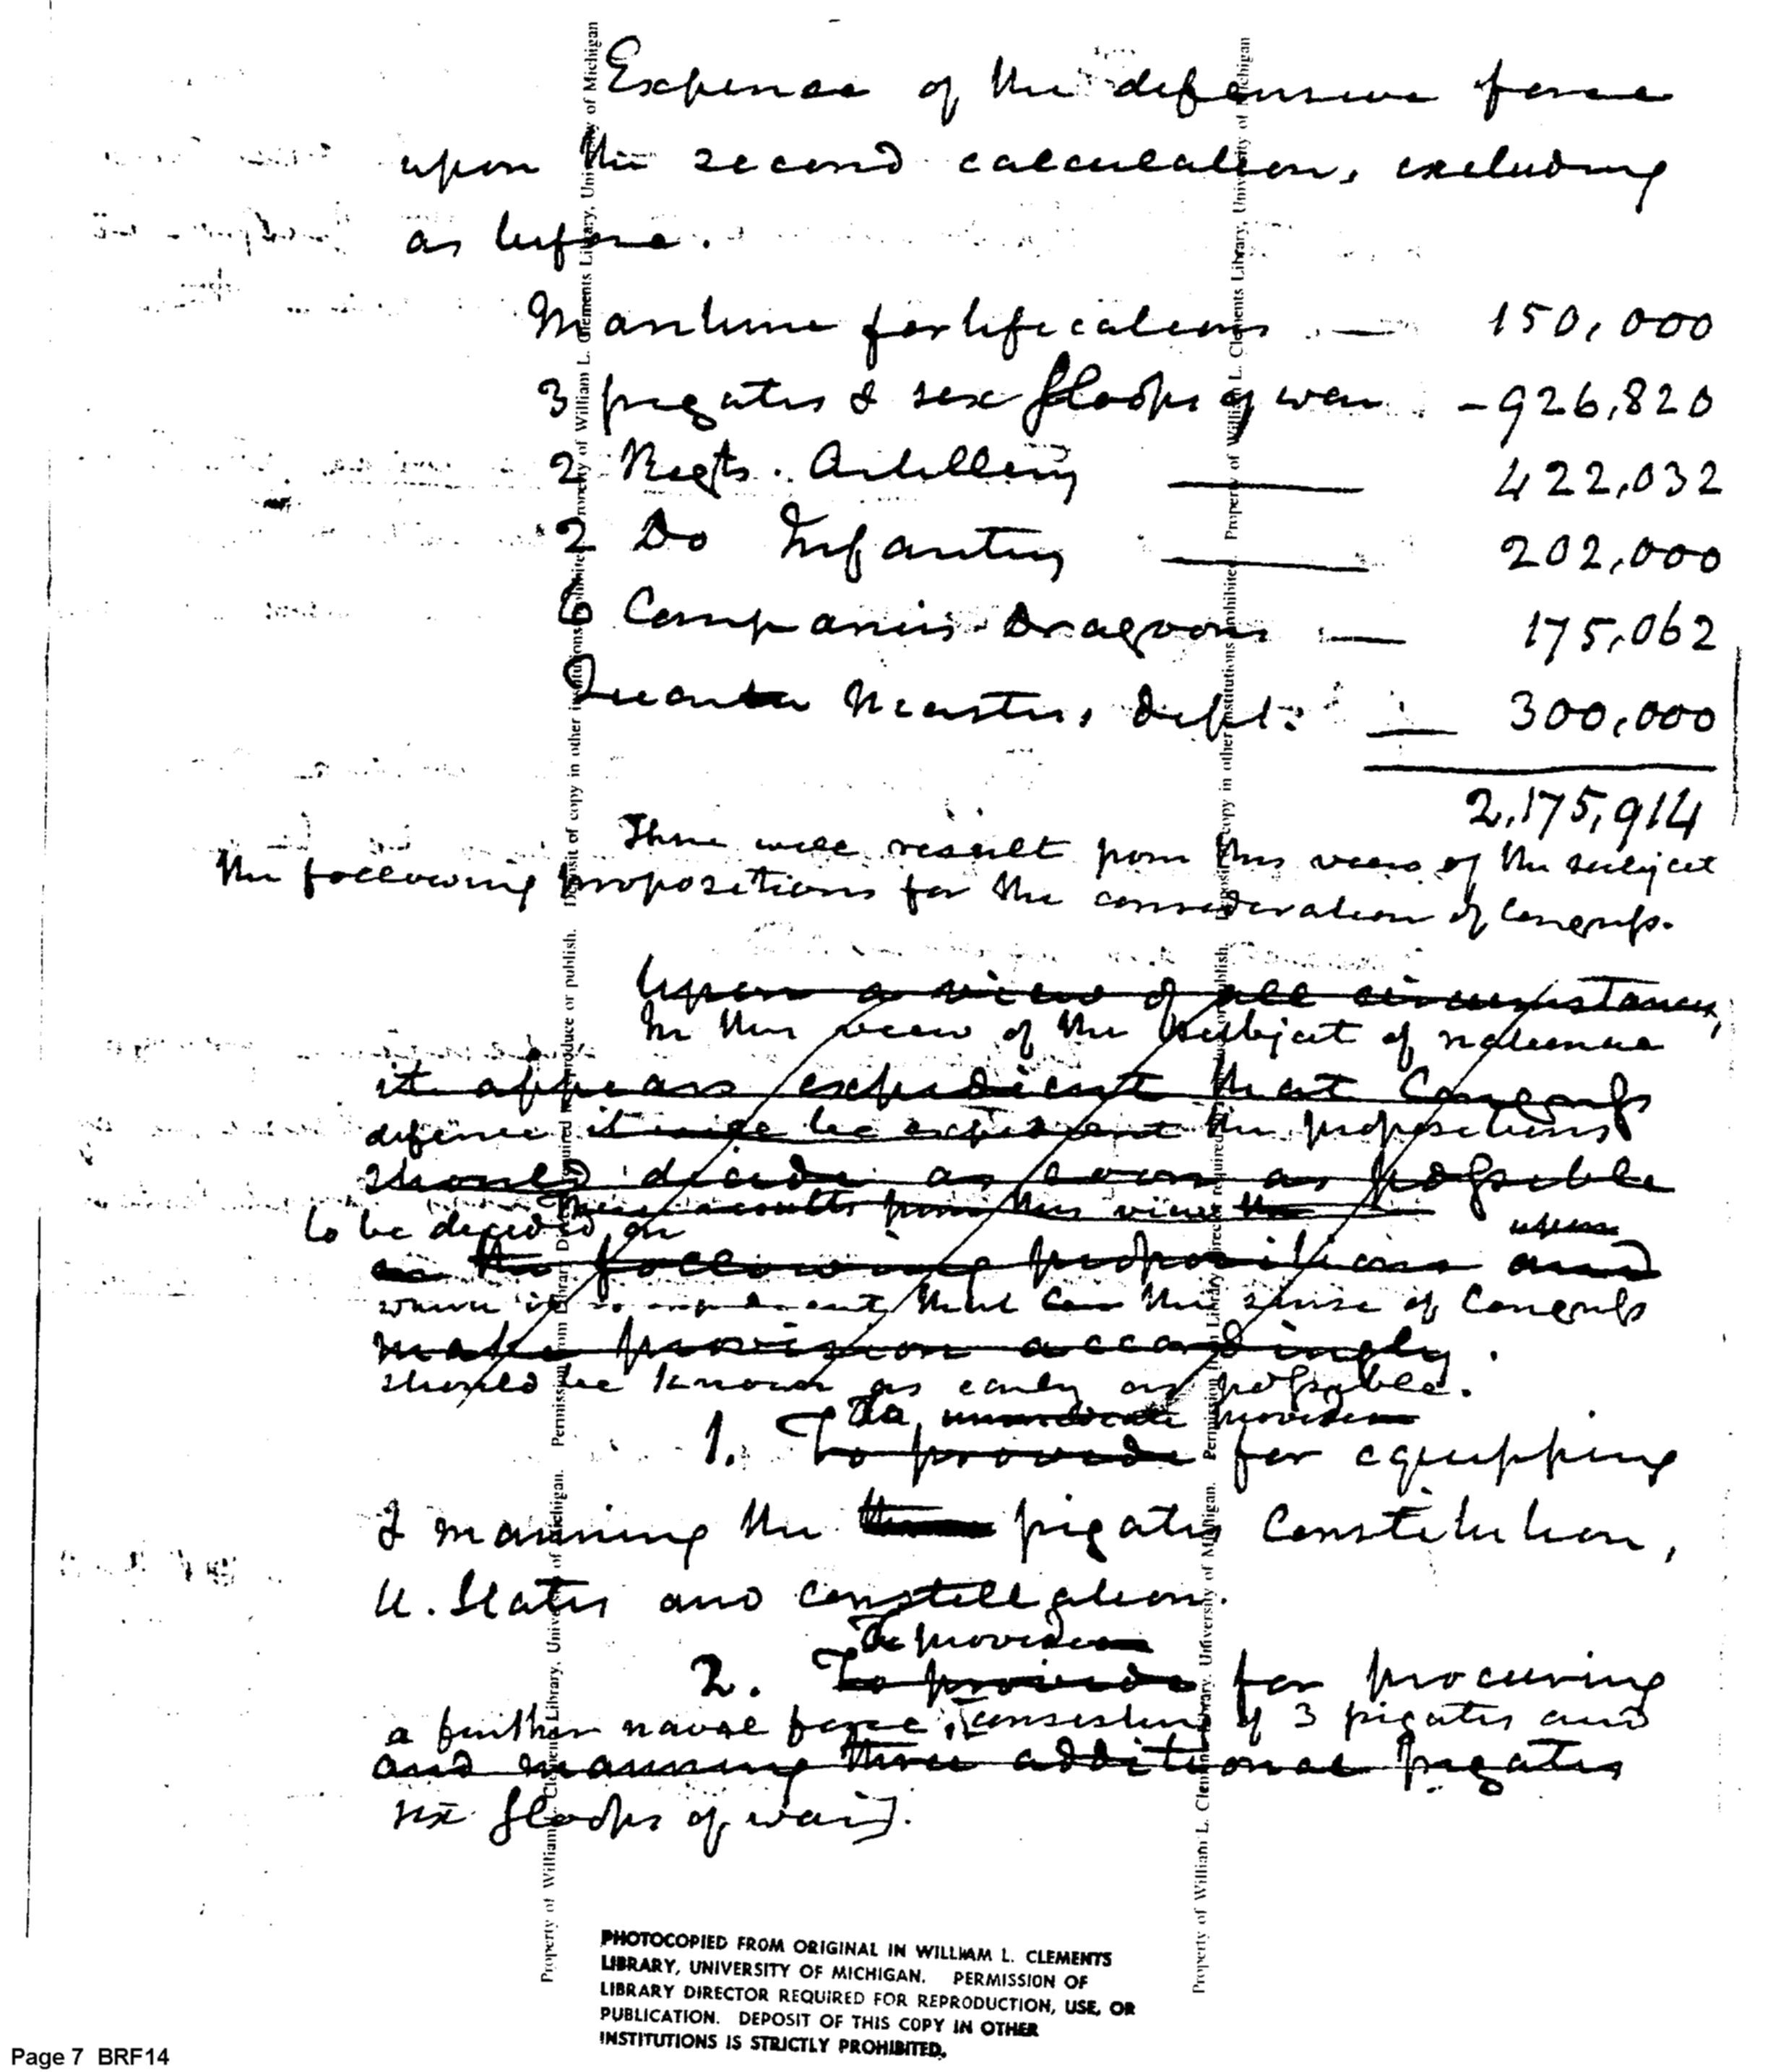 Expense of the defensive force
upon the second calculation, excluding
as before.
Maritime fortifications — 150,000
3 frigates & six Sloops of war - 926,820
2 Regts. Artillery — 422,032
2 Do Infantry — 202,000
6 Companies Dragoons — 175,062
Quarter Masters Dept. — 300,000
2,175,914
There will result from this view of the subject
the following propositions for the consideration of Congress.
Upon a view of all circumstances,
In this view of the subject of national
it appears expedient that Congress
defence it will be expedient the propositions
should decide as soon as possible
There results from this view the
to be decided on upon
on the following propositions and
that the sense of Congress
make provision accordingly.
should be known as early as possible.
immediate provision
1. To provide for equipping
& manning the three frigates Constitution,
U. States and Constellation.
To provision
2. To provide for procuring
a further naval force, [consisting of 3 frigates and
and manning three additional frigates
six sloops of war].
Property of William L. Clements Library, University of Michigan. Permission from Library Director required to reproduce or publish. Deposit of copy in other institutions prohibited. Property of William L. Clements Library, University of Michigan
Property of William L. Clements Library, University of Michigan. Permission from Library Director required to reproduce or publish. Deposit of copy in other institutions prohibited. Property of William L. Clements Library, University of Michigan
PHOTOCOPIED FROM ORIGINAL IN WILLIAM L. CLEMENTS
LIBRARY, UNIVERSITY OF MICHIGAN. PERMISSION OF
LIBRARY DIRECTOR REQUIRED FOR REPRODUCTION, USE, OR
PUBLICATION. DEPOSIT OF THIS COPY IN OTHER
INSTITUTIONS IS STRICTLY PROHIBITED.
Page 7 BRF14